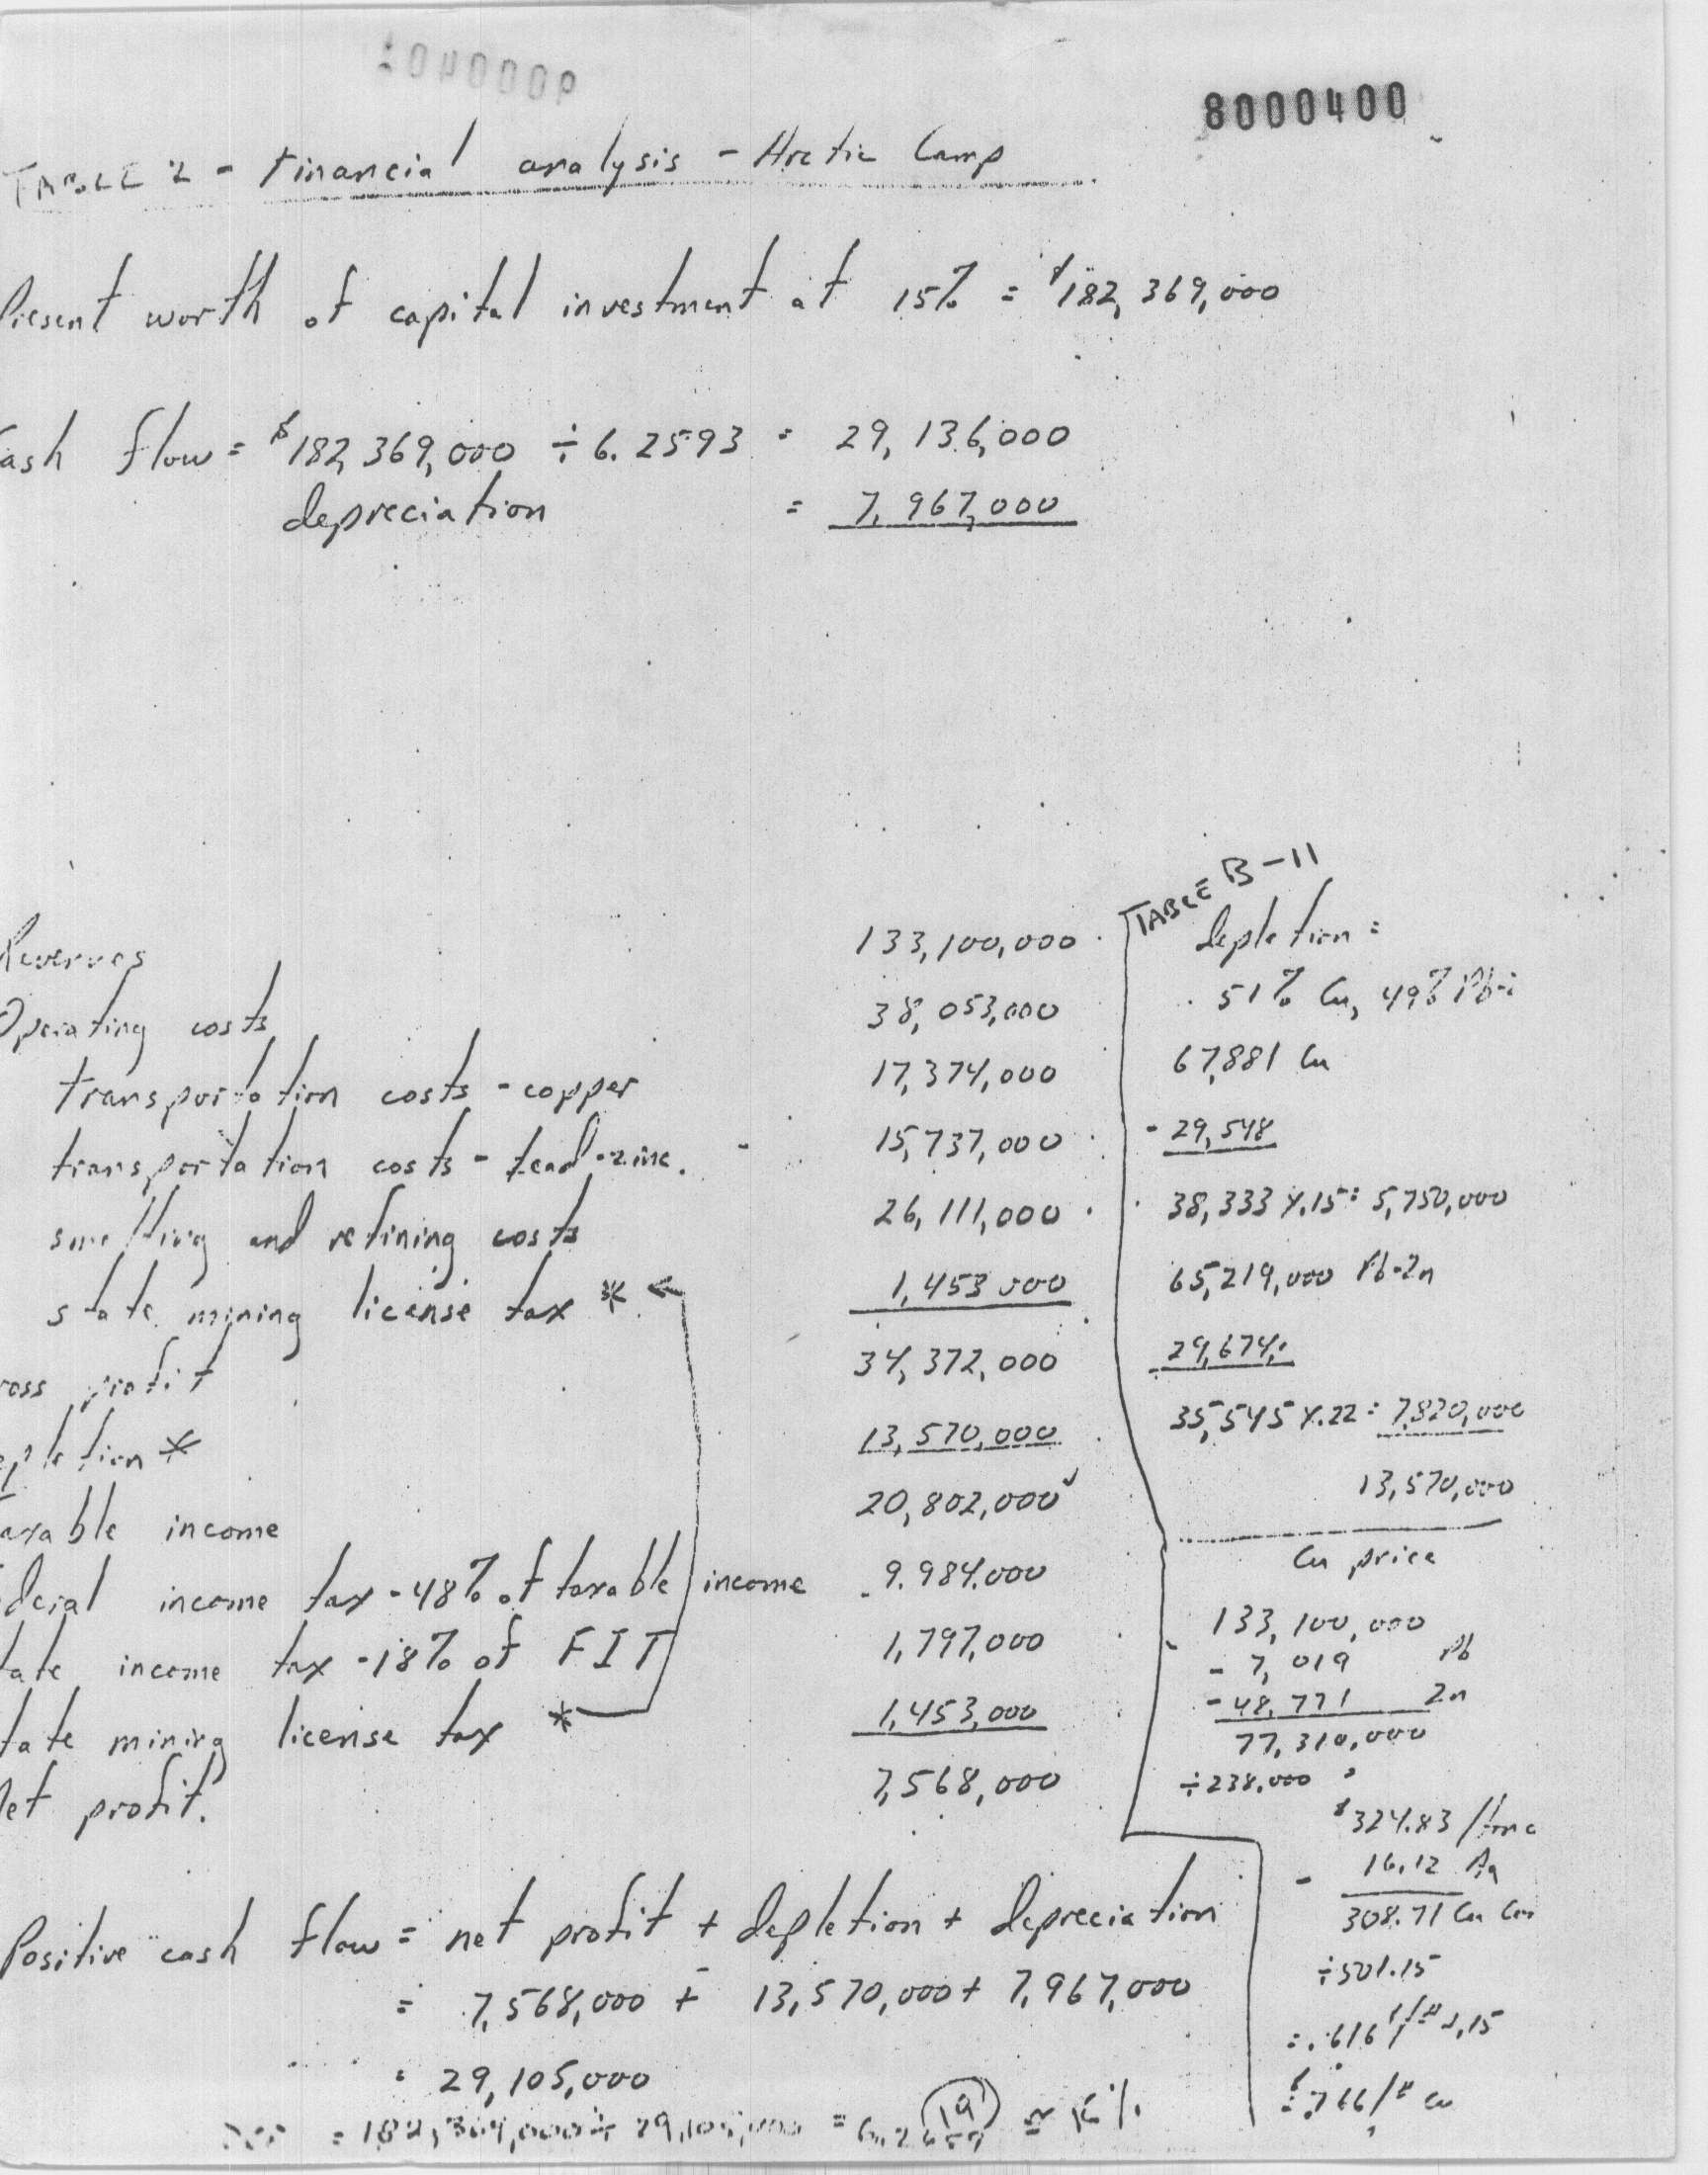 8000400
TABLE 2 - Financial analysis - Arctic Camp
Present worth of capital investment at 15% = $182,369,000
Cash flow = $182,369,000 ÷ 6.2593 = 29,136,000
depreciation = 7,967,000
Revenues 133,100,000
Operating costs 38,053,000
transportation costs - copper 17,374,000
transportation costs - lead-zinc. 15,737,000
smelting and refining costs 26,111,000
state mining license tax * 1,453,000
ross profit 34,372,000
epletion * 13,570,000
axable income 20,802,000
ederal income tax - 48% of taxable income 9.984.000
tate income tax - 18% of FIT 1,797,000
tate mining license tax * 1,453,000
Net profit. 7,568,000
TABLE B-11
depletion =
51% Cu, 49%
67,881 Cu
- 29,548
38,333 x .15 = 5,750,000
65,219,000 Pb-Zn
29,674
35,545 x .22 = 7,820,000
13,570,000
Cu price
133,100,000
- 7,019 Pb
- 48,771 Zn
77,310,000
÷ 238,000
$324.83 /
- 16.12 Ag
308.71 Cu
÷ 501.15
= .616
.766/# Cu
Positive cash flow = net profit + depletion + depreciation
= 7,568,000 + 13,570,000 + 7,967,000
= 29,105,000